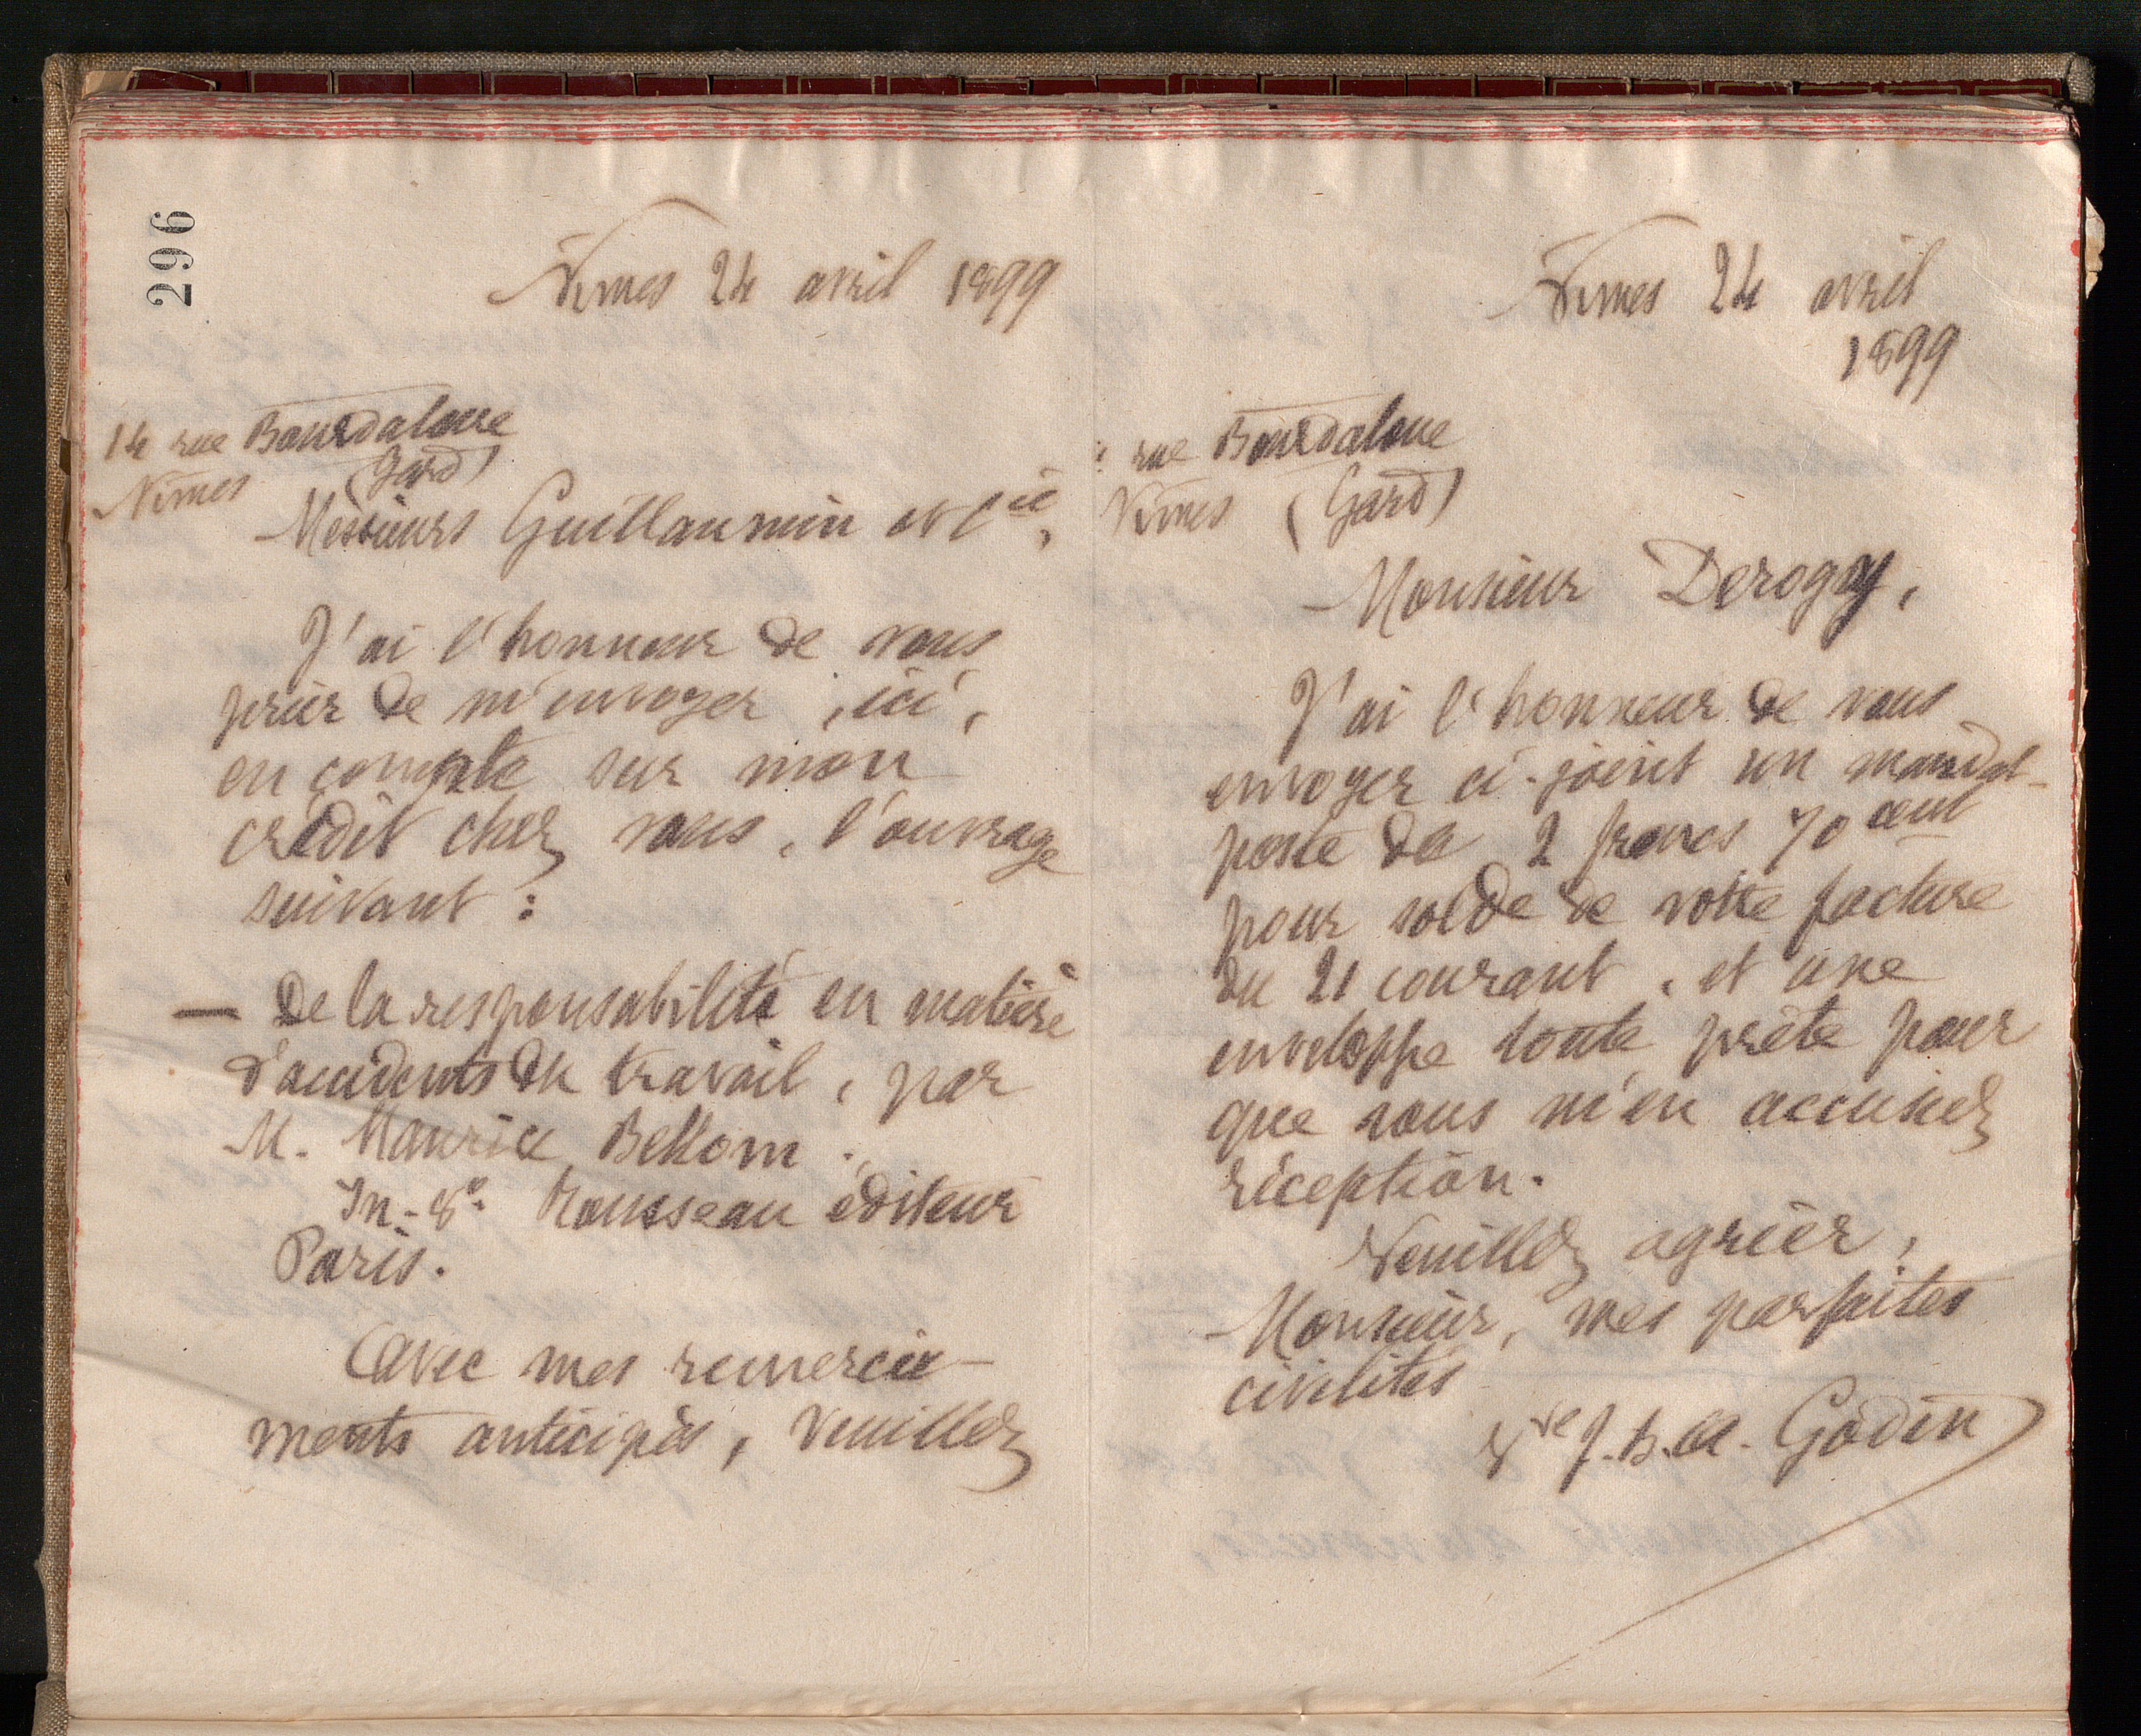 296
Nîmes 24 avril 1899
14 rue Bourdaloue
Nîmes (Gard)
Messieurs Guillaumin et Cie,
J'ai l'honneur de vous
prier de m'envoyer, ici,
en compte sur mon
crédit chez vous, l'ouvrage
suivant :
— De la responsabilité en matière
d'accidents du travail, par
M. Maurice Bellom.
In-8º. Rousseau éditeur
Paris.
Avec mes remercie-
ments anticipés, veuillez
Nîmes 24 avril
1899
rue Bourdaloue
Nîmes (Gard)
Monsieur Derogy,
J'ai l'honneur de vous
envoyer ci-joint un mandat-
poste de 2 francs 70 cent
pour solde de votre facture
du 21 courant, et une
enveloppe toute prête pour
que vous m'en accusiez
réception.
Veuillez agréer,
Monsieur, mes parfaites
civilités
Vve J. B. A. Godin